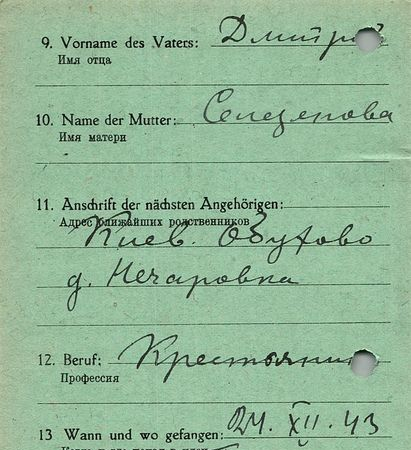 9. Vorname des Vaters: Дмитрий
Имя отца
10. Name der Mutter: Селезенова
Имя матери
11. Anschrift der nächsten Angehörigen:
Адрес ближайших родственников
Киев. Обухово
д. Нечаровка
12. Beruf: Крестянин
Профессия
13 Wann und wo gefangen: 24. XII. 43